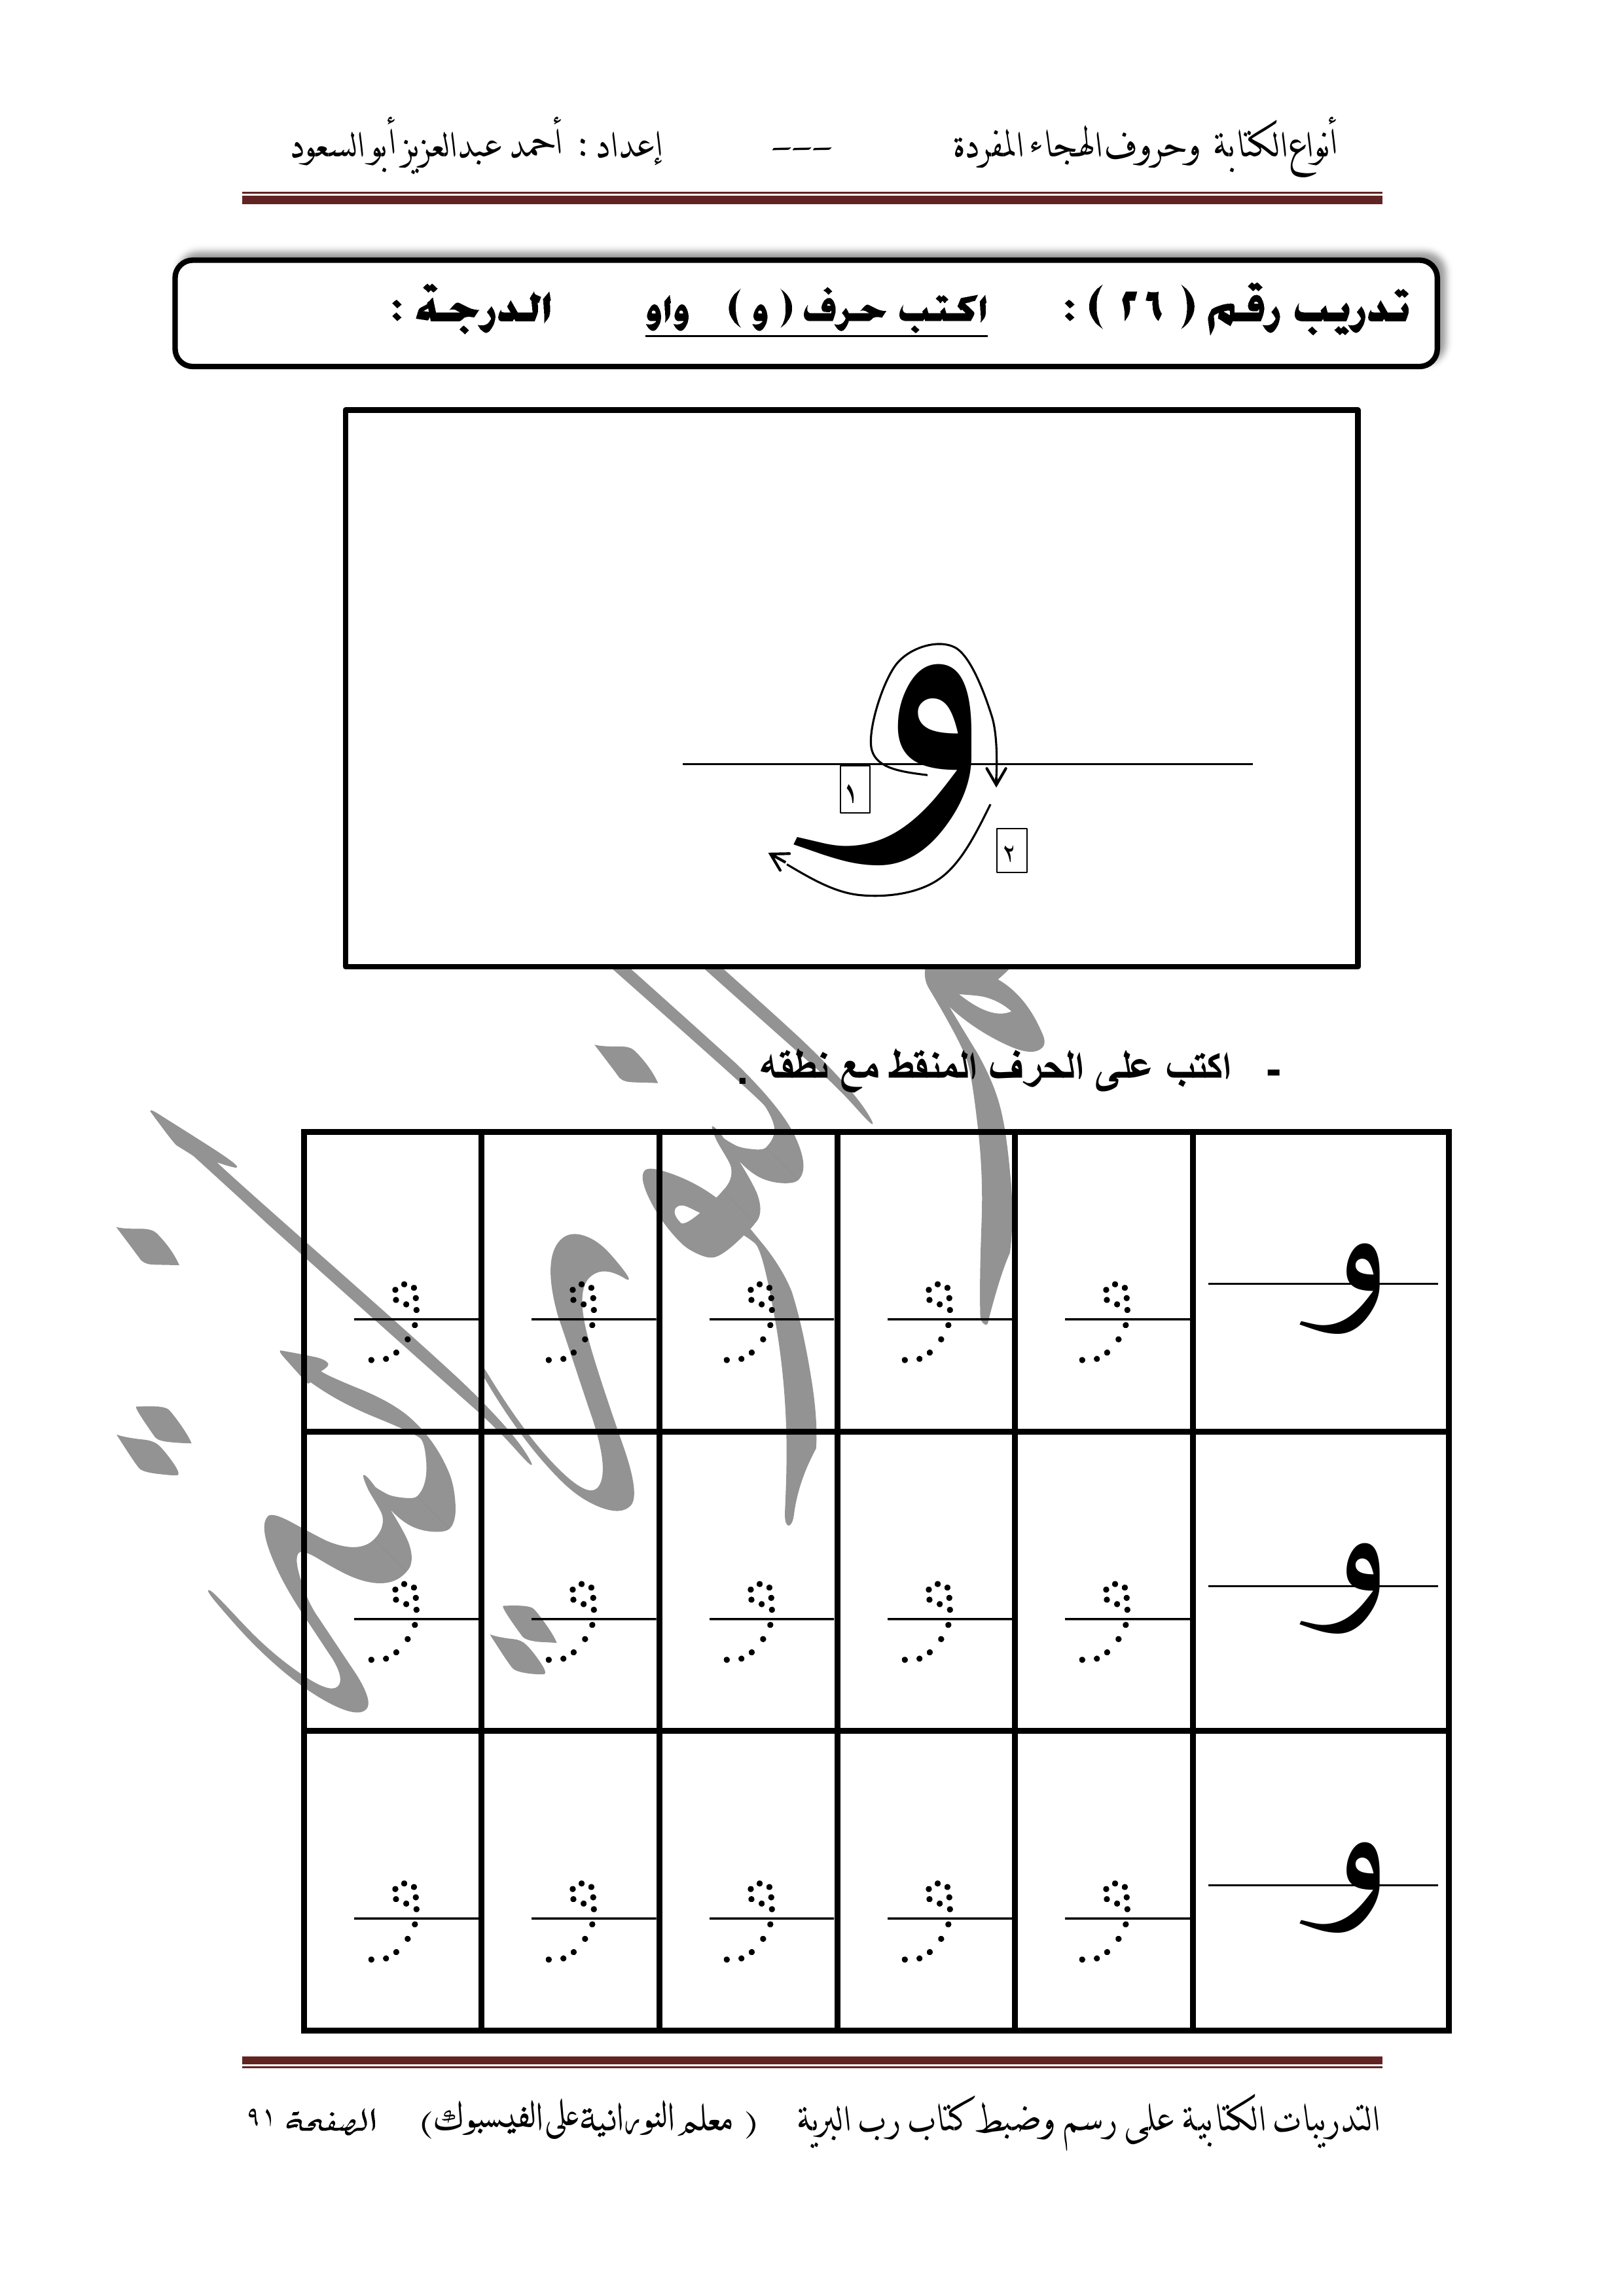 أنواع الكتابة وحروف الهجاء المفردة --- إعداد : أحمد عبدالعزيز أبو السعود
تدريب رقم ( ٢٦ ) : اكتب حرف ( و ) واو الدرجة :
و
١
٢
- اكتب على الحرف المنقط مع نطقه .
و و و و و و
و و و و و و
و و و و و و
التدريبات الكتابية على رسم وضبط كتاب رب البرية ( معلم النورانية على الفيسبوك) الصفحة ٩١